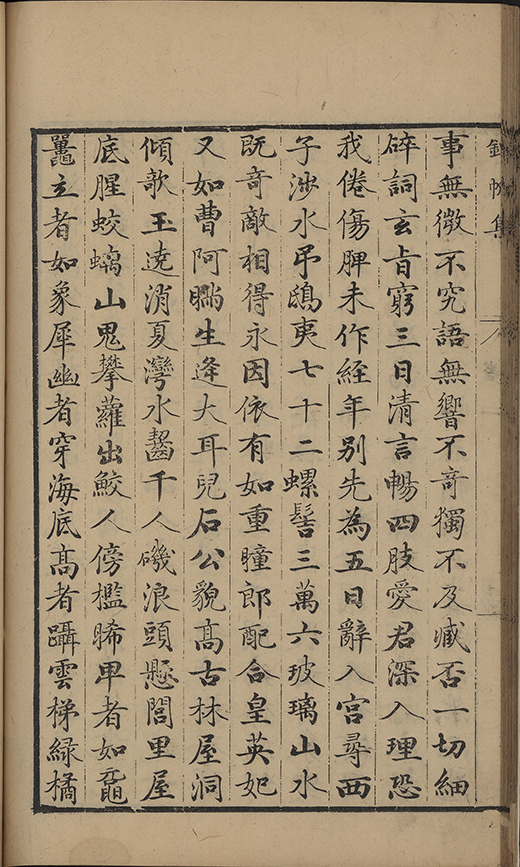 錦帆集
事無微不究語無響不奇獨不及臧否一切細
碎詞玄旨窮三日清言暢四肢愛君深入理恐
我倦傷脾未作經年別先為五日辭入宮尋西
子涉水弔鴟夷七十二螺髻三萬六玻璃山水
既竒敵相得永因依有如重瞳郎配合皇英妃
又如曹阿瞞生逢大耳兒石公貌高古林屋洞
傾欹玉遶消夏灣水齧千人磯浪頭懸閭里屋
底腥蛟螭山鬼攀蘿出鮫人傍檻晞卑者如黿
鼉立者如象犀幽者穿海底高者躡雲梯緑橘